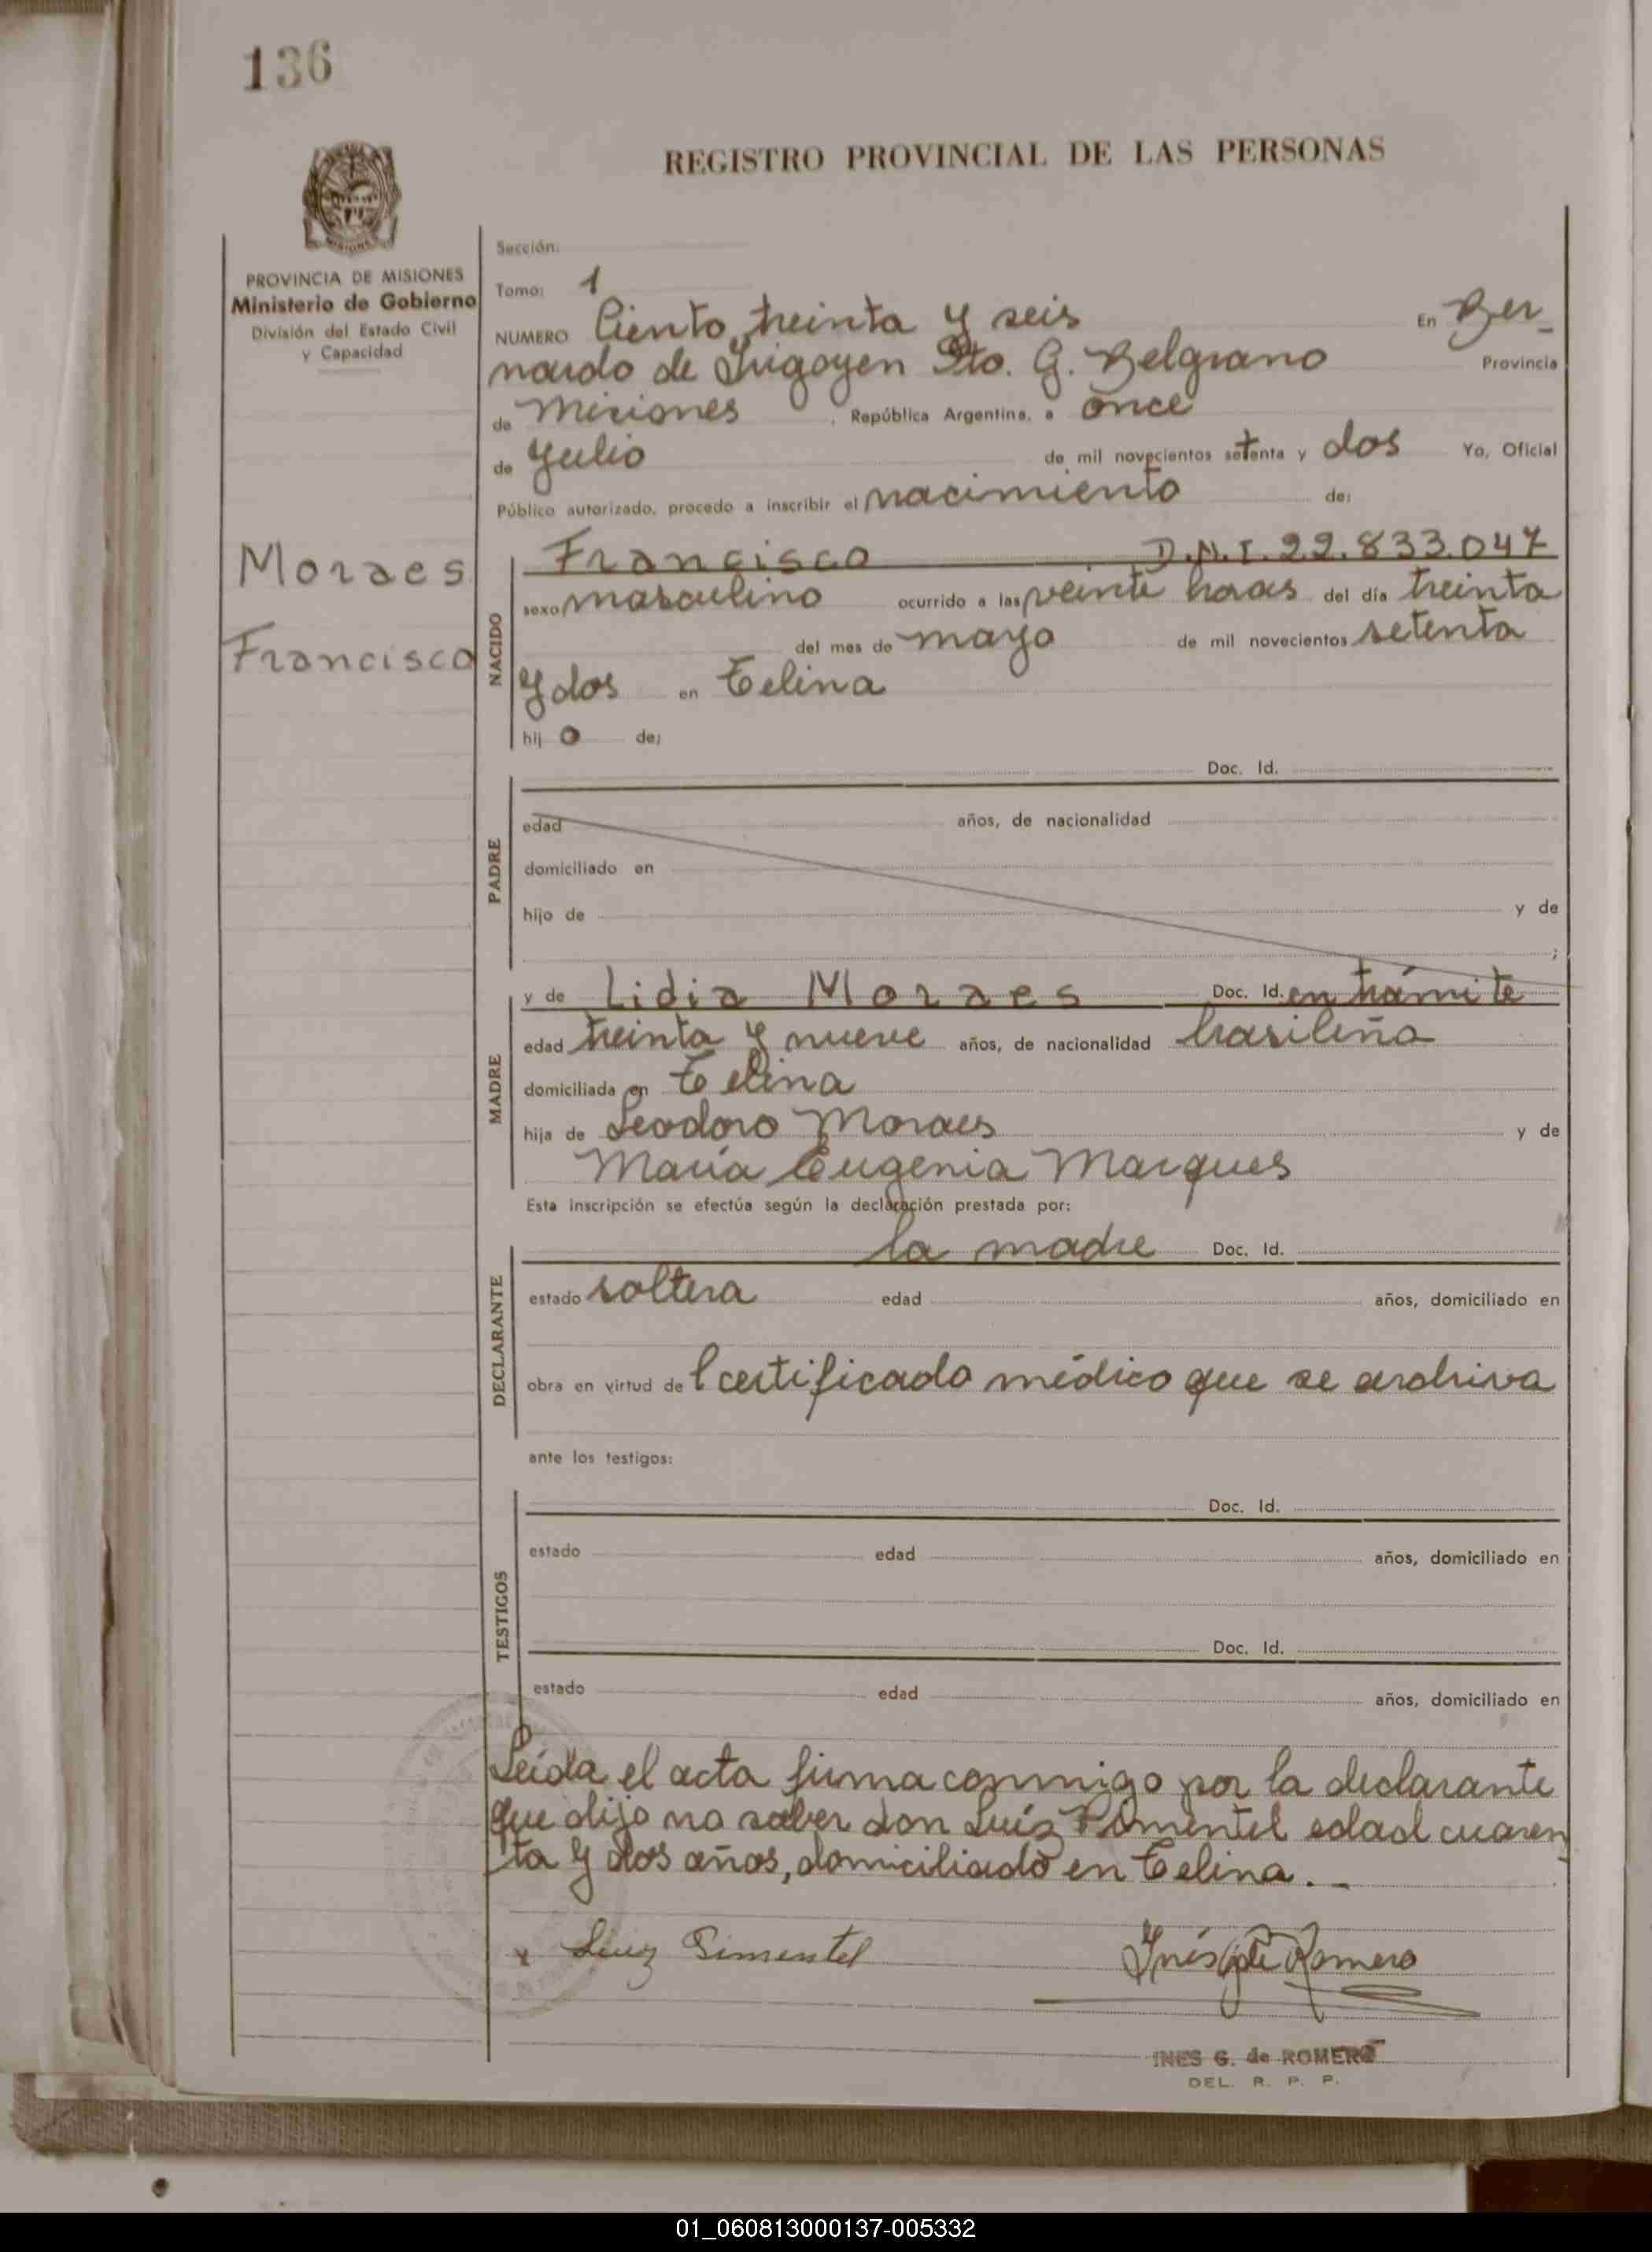 136
REGISTRO PROVINCIAL DE LAS PERSONAS
PROVINCIA DE MISIONES
Ministerio de Gobierno
División del Estado Civil
y Capacidad
Sección:
Tomo: 1
NUMERO Ciento treinta y seis En Ber_
nardo de Irigoyen Dto. G. Belgrano Provincia
de Misiones, República Argentina, a once
de Julio de mil novecientos setenta y dos Yo, Oficial
Público autorizado, procedo a inscribir el nacimiento de:
Moraes
Francisco
NACIDO
Francisco D.N.I. 22.833.047
sexo masculino ocurrido a las veinte horas del día treinta
del mes de mayo de mil novecientos setenta
y dos en Celina
hij o de;
PADRE
Doc. Id.
edad años, de nacionalidad
domiciliado en
hijo de y de
;
MADRE
y de Lidia Moraes Doc. Id. en trámite
edad treinta y nueve años, de nacionalidad brasileña
domiciliada en Celina
hija de Leodoro Moraes y de
María Eugenia Marques
Esta inscripción se efectúa según la declaración prestada por:
DECLARANTE
la madre Doc. Id.
estado soltera edad años, domiciliado en
obra en virtud de l certificado médico que se archiva
ante los testigos:
TESTIGOS
Doc. Id.
estado edad años, domiciliado en
Doc. Id.
estado edad años, domiciliado en
Leída el acta firma conmigo por la declarante
que dijo no saber don Luíz Pimentel edad cuaren
ta y dos años, domiciliado en Celina._
x Luiz Pimentel Inés G. de Romero
INES G. de ROMERO
DEL. R. P. P.
01_060813000137-005332